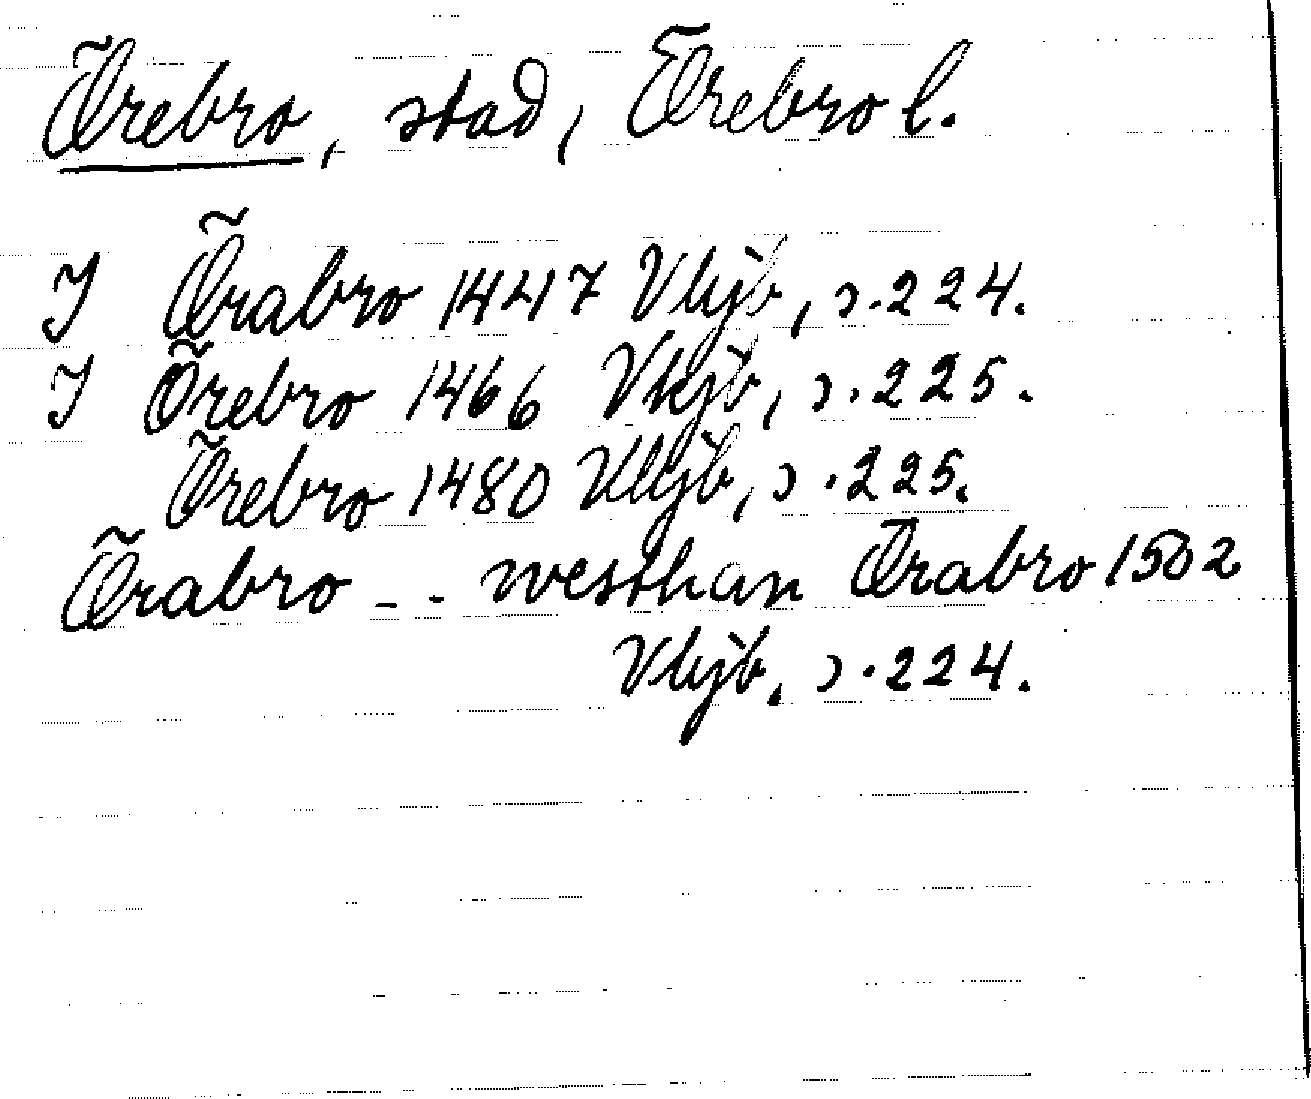 Örebro, stad, Örebro l.
I Örabro 1447 Vkjb, s. 224.
I Örebro 1466 Vkjb, s. 225.
Örebro 1480 Vkjb, s. 225.
Örabro - - westhan Örabro 1502
Vkjb, s. 224.